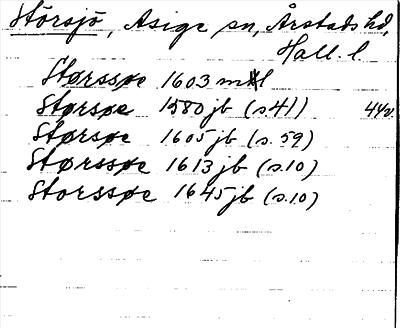 Störsjö, Asige sn, Årstads hd,
Hall. l.
Størssøe 1603 mtl
Størsøe 1580 jb (s. 41) 44v.
Størsøe 1605 jb (s. 59)
Størssøe 1613 jb (s. 10)
Storssøe 1645 jb (s. 10)